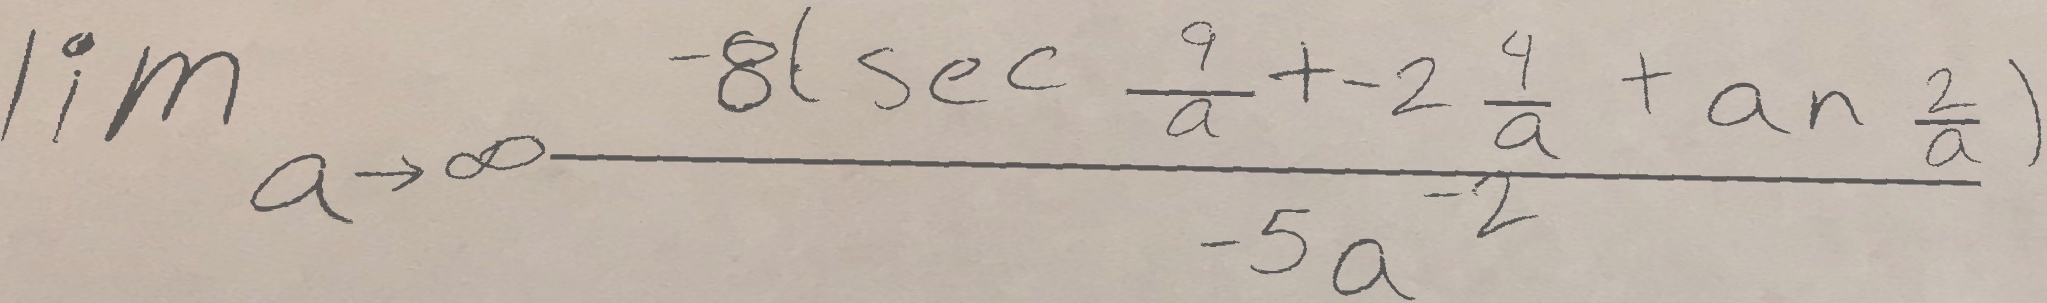 \lim_{a \to \infty} \frac{-8(\sec \frac{9}{a} + -2 \frac{4}{a} \tan \frac{2}{a})}{-5a^{-2}}